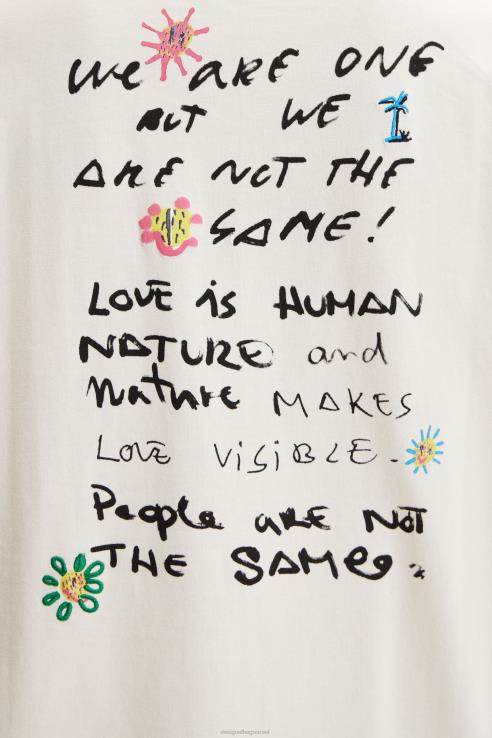 We ARE ONE
BUT WE
ARE NOT THE
SAME!
LOVE is HUMAN
NATURE and
Nature MAKES
LOVE ViSiBLE.
People aRE NOT
THE SAMe.